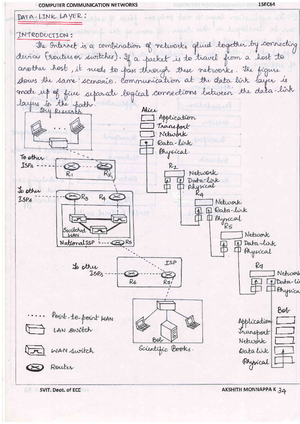 COMPUTER COMMUNICATION NETWORKS 15EC64
DATA-LINK LAYER:
INTRODUCTION:
The Internet is a combination of networks glued together by connecting
devices (routers or switches). If a packet is to travel from a host to
another host, it needs to pass through these networks. The figure
shows the same scenario. Communication at the data link layer is
made up of five separate logical connections between the data-link
layers in the path.
Sky Research
Alice
Application
Transport
Network
Data-link
Physical
To other
ISPs
R1
R2
R2
Network
Data-link
Physical
To other
ISPs
R3
R4
R4
Network
Data-link
Physical
Switched
WAN
National ISP
R5
R5
Network
Data-link
Physical
To other
ISPs
ISP
R6
R7
R7
Network
Data-li
Physica
Point-to-point WAN
LAN switch
WAN switch
Router
Bob
Scientific Books.
Bob
Application
Transport
Network
Data link
Physical
SVIT, Dept. of ECE
AKSHITH MONNAPPA K 34